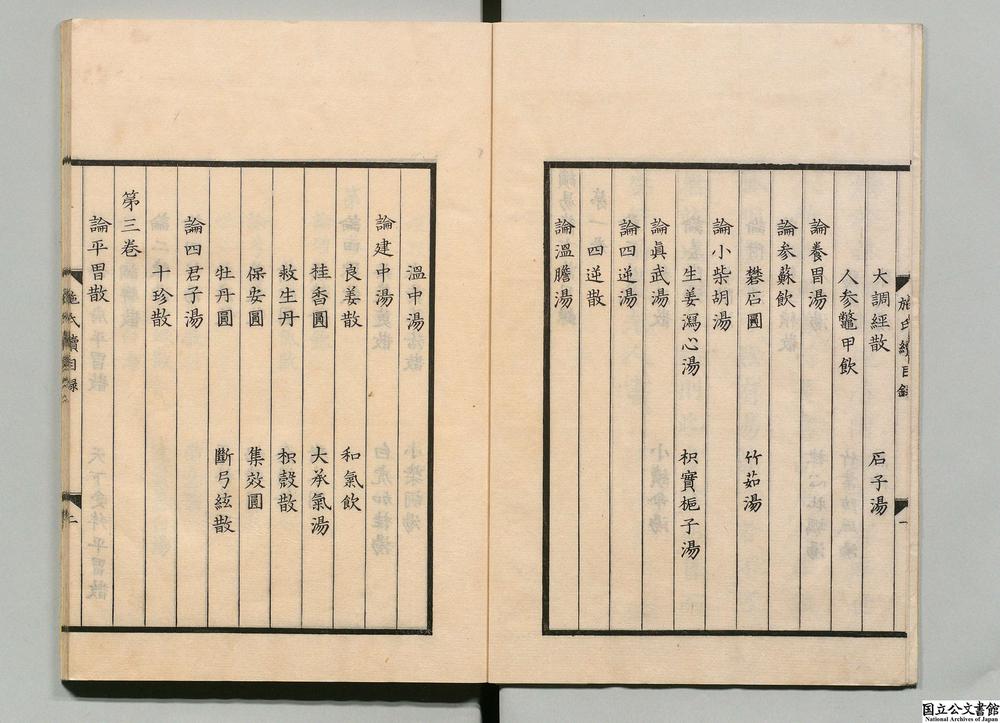 施氏續目錄
一
大調經散　石子湯
人參鼈甲飲
論養胃湯
論參蘇飲
礬石圓　竹茹湯
論小柴胡湯
生姜瀉心湯　枳實梔子湯
論眞武湯
論四逆湯
四逆散
論溫膽湯
溫中湯
論建中湯
良姜散　和氣飲
桂香圓　大承氣湯
救生丹　枳殼散
保安圓　集效圓
牡丹圓　斷弓絃散
論四君子湯
十珍散
第三卷
論平胃散
施氏續目録
二
国立公文書館
National Archives of Japan